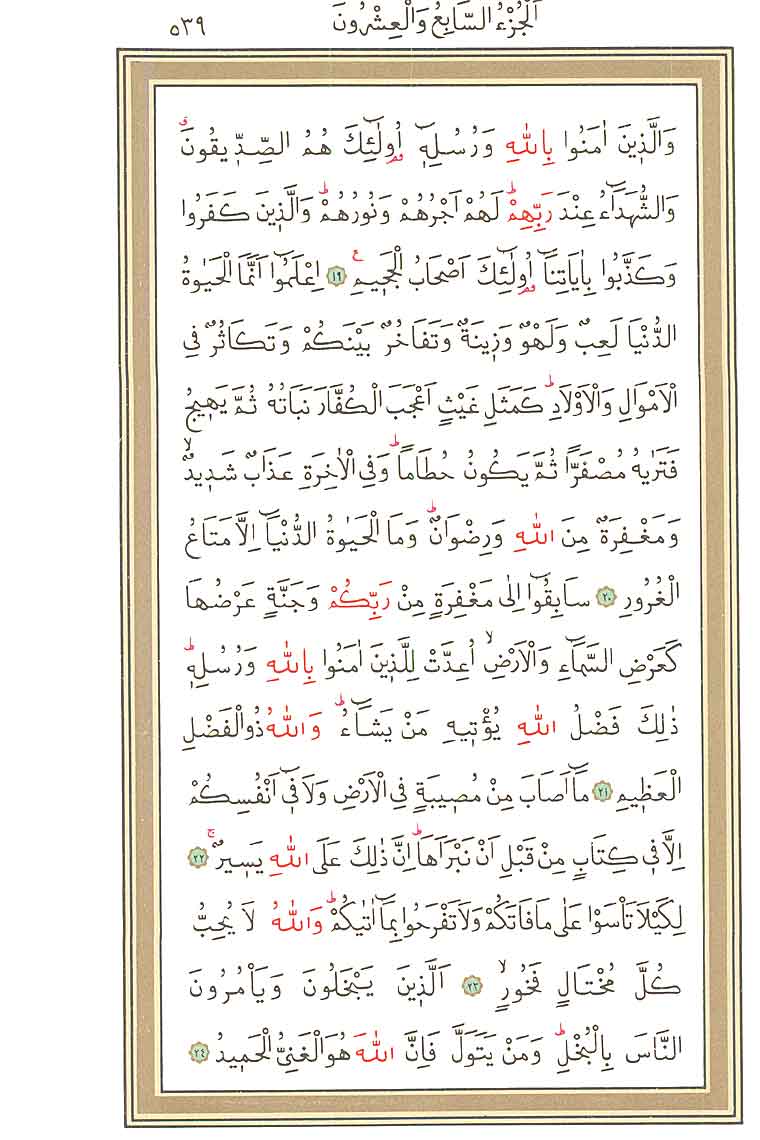 اَلْجُزْءُ السَّابِعُ وَالْعِشْرُونَ ٥٣٩
وَالَّذ۪ينَ اٰمَنُوا بِاللّٰهِ وَرُسُلِه۪ٓ اُو۬لٰٓئِكَ هُمُ الصِّدّ۪يقُونَۗ
وَالشُّهَدَٓاءُ عِنْدَ رَبِّهِمْۜ لَهُمْ اَجْرُهُمْ وَنُورُهُمْۜ وَالَّذ۪ينَ كَفَرُوا
وَكَذَّبُوا بِاٰيَاتِنَٓا اُو۬لٰٓئِكَ اَصْحَابُ الْجَح۪يمِ۟ ﴿١٩﴾ اِعْلَمُٓوا اَنَّمَا الْحَيٰوةُ
الدُّنْيَا لَعِبٌ وَلَهْوٌ وَز۪ينَةٌ وَتَفَاخُرٌ بَيْنَكُمْ وَتَكَاثُرٌ فِي
الْاَمْوَالِ وَالْاَوْلَادِۜ كَمَثَلِ غَيْثٍ اَعْجَبَ الْكُفَّارَ نَبَاتُهُ ثُمَّ يَه۪يجُ
فَتَرٰيهُ مُصْفَرًّا ثُمَّ يَكُونُ حُطَاماًۜ وَفِي الْاٰخِرَةِ عَذَابٌ شَد۪يدٌۙ
وَمَغْفِرَةٌ مِنَ اللّٰهِ وَرِضْوَانٌۜ وَمَا الْحَيٰوةُ الدُّنْيَٓا اِلَّا مَتَاعُ
الْغُرُورِ ﴿٢٠﴾ سَابِقُٓوا اِلٰى مَغْفِرَةٍ مِنْ رَبِّكُمْ وَجَنَّةٍ عَرْضُهَا
كَعَرْضِ السَّمَٓاءِ وَالْاَرْضِۙ اُعِدَّتْ لِلَّذ۪ينَ اٰمَنُوا بِاللّٰهِ وَرُسُلِه۪ۜ
ذٰلِكَ فَضْلُ اللّٰهِ يُؤْت۪يهِ مَنْ يَشَٓاءُۜ وَاللّٰهُ ذُو الْفَضْلِ
الْعَظ۪يمِ ﴿٢١﴾ مَٓا اَصَابَ مِنْ مُص۪يبَةٍ فِي الْاَرْضِ وَلَا ف۪ٓي اَنْفُسِكُمْ
اِلَّا ف۪ي كِتَابٍ مِنْ قَبْلِ اَنْ نَبْرَاَهَاۜ اِنَّ ذٰلِكَ عَلَى اللّٰهِ يَس۪يرٌۚ ﴿٢٢﴾
لِكَيْلَا تَأْسَوْا عَلٰى مَا فَاتَكُمْ وَلَا تَفْرَحُوا بِمَٓا اٰتٰيكُمْۜ وَاللّٰهُ لَا يُحِبُّ
كُلَّ مُخْتَالٍ فَخُورٍۙ ﴿٢٣﴾ اَلَّذ۪ينَ يَبْخَلُونَ وَيَأْمُرُونَ
النَّاسَ بِالْبُخْلِۜ وَمَنْ يَتَوَلَّ فَاِنَّ اللّٰهَ هُوَ الْغَنِيُّ الْحَم۪يدُ ﴿٢٤﴾